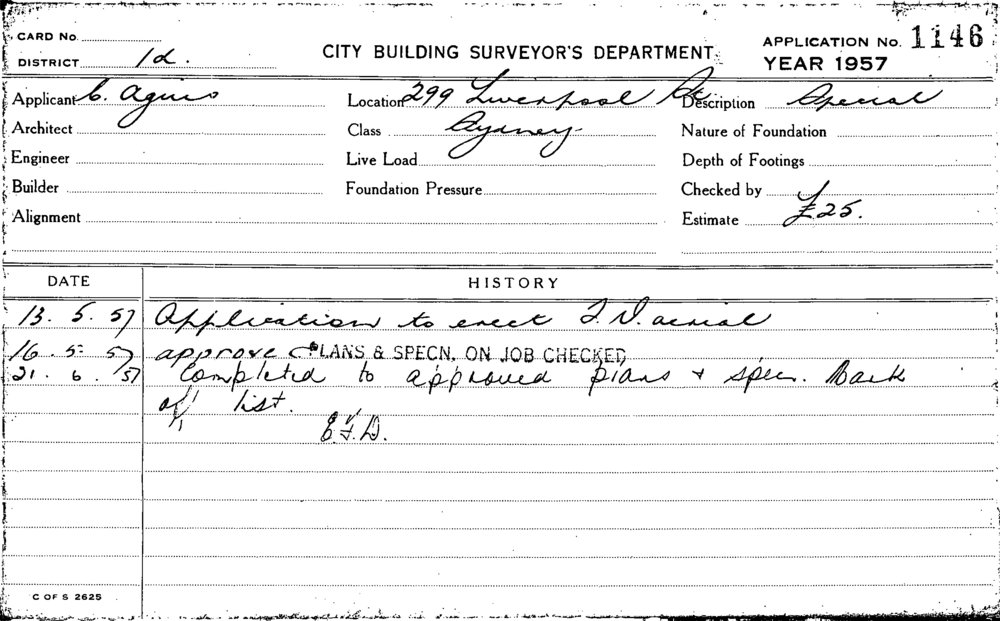 CARD No.
DISTRICT 1d.
CITY BUILDING SURVEYOR'S DEPARTMENT
APPLICATION No. 1146
YEAR 1957
Applicant C. Agius Location 299 Liverpool St Description Special
Architect Class Sydney. Nature of Foundation
Engineer Live Load Depth of Footings
Builder Foundation Pressure Checked by
Alignment Estimate £25.
DATE HISTORY
13. 5. 57 Application to erect T.V. aerial
16. 5. 57 approve PLANS & SPECN. ON JOB CHECKED
21. 6. 57 Completed to approved plans & specn. Mark
off list.
C OF S 2625